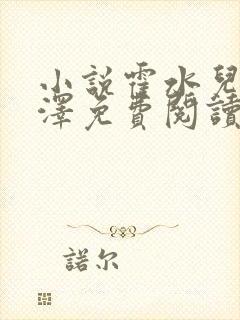 小說霍水兒
澤免費閱讀
諾尔